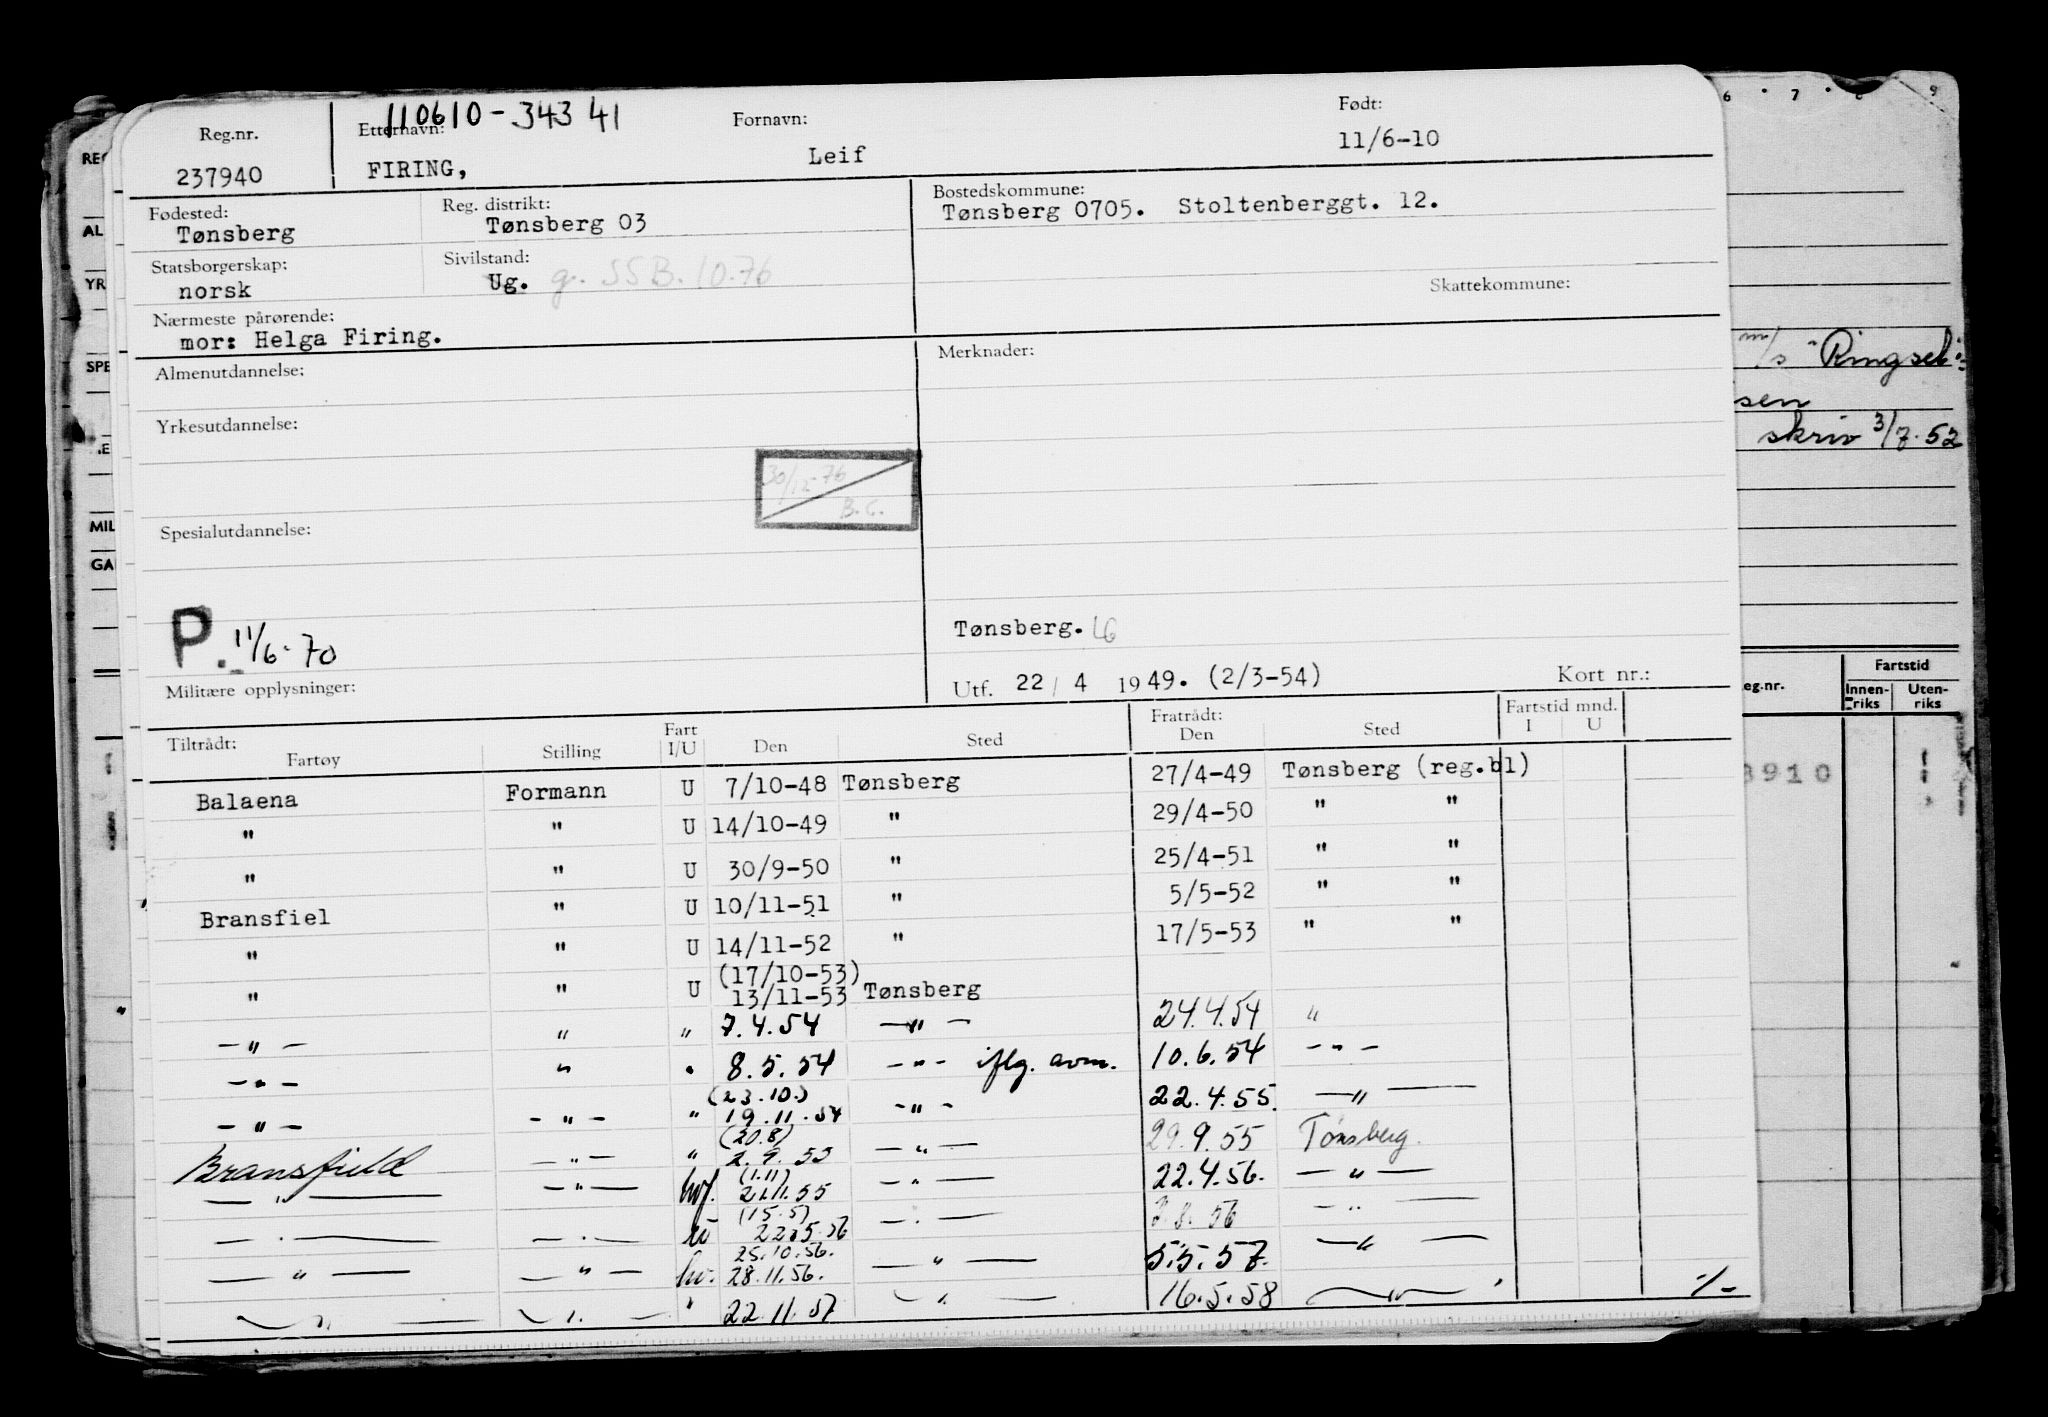 110610-343 41
Reg.nr. Etternavn: Fornavn: Født:
237940 FIRING, Leif 11/6-10
Fødested: Reg. distrikt: Bostedskommune:
Tønsberg Tønsberg 03 Tønsberg 0705. Stoltenberggt. 12.
Statsborgerskap: Sivilstand: Skattekommune:
norsk Ug. g. SSB.10.76
Nærmeste pårørende:
mor: Helga Firing.
Almenutdannelse: Merknader:
Yrkesutdannelse:
30/12-76
B.C.
Spesialutdannelse:
P. 11/6-70
Tønsberg. LG
Militære opplysninger: Utf. 22/4 1949. (2/3-54) Kort nr.:
Tiltrådt: Fart Fratrådt: Fartstid mnd.
Fartøy Stilling I/U Den Sted Den Sted I U
Balaena Formann U 7/10-48 Tønsberg 27/4-49 Tønsberg (reg.bl)
" " U 14/10-49 " 29/4-50 " "
" " U 30/9-50 " 25/4-51 " "
Bransfiel " U 10/11-51 " 5/5-52 " "
" " U 14/11-52 " 17/5-53 " "
(17/10-53)
" " U 13/11-53 Tønsberg
-"- " " 7.4.54 -"- 24.4.54 "
-"- " " 8.5.54 -"- iflg. avm. 10.6.54 -"-
(23.10.)
-"- -"- " 19.11.54 -"- 22.4.55. -"-
(20.8)
Bransfield -"- " 2.9.55 -"- 29.9.55 Tønsberg.
(1.11)
-"- -"- hvf. 21.11.55 -"- 22.4.56. -"-
(15.5)
-"- -"- 22.5.56 -"- 2.8.56 -"-
25.10.56.
-"- -"- hv. 28.11.56. -"- 5.5.57. -"-
-"- -"- " 22.11.57 -"- 16.5.58 -"- -/-
6 7 8 9
REG
AL
YR
SPE
MIL
GA
m/s "Ringsel"
sen
skriv 3/7.52
eg.nr. Fartstid
Innenriks Utenriks
3910